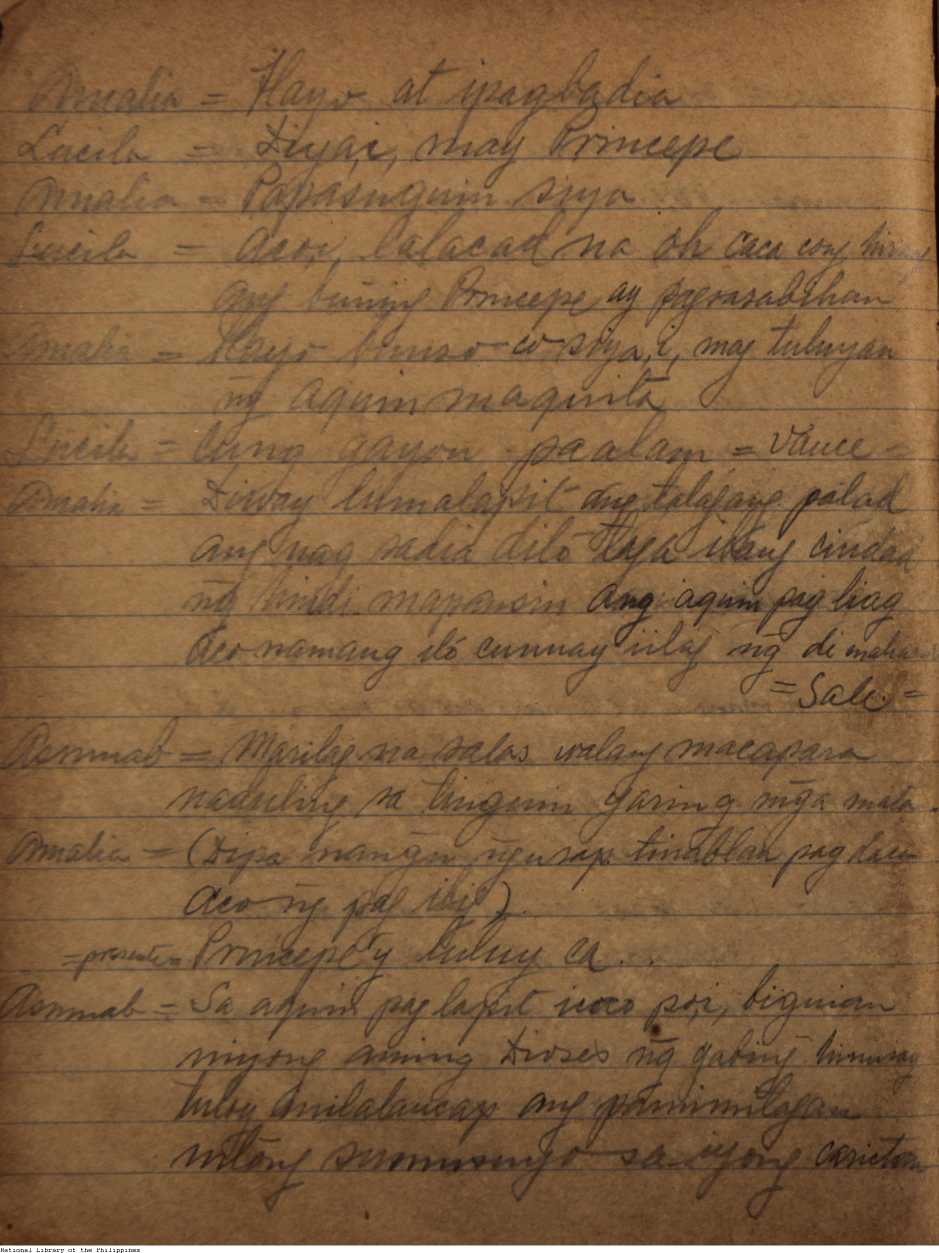 Amalia = Hayo at ipagbadia
Lucila = Diyai, may Princepe
Amalia = Papasuguin siya
Lucila = Acoi, lalacad na oh caca cong hirang
ang buning Princepe ay pagsasabihan
Amalia = Hayo bunso co siya,i, mag tuluyan
ng aquin maquita
Lucila = Cung gayon paalam = Vance =
Amalia = lumalapit ang talagang palad
ang nag sadia dito taga ibang ciudad
ng hindi maparisin ang aquin pag liag
Aco namang ito cunuay iilag ng di
= Sale =
Asmmab = Marilag na salas walang macapara
naduling sa tinguin garing mga mata
Amalia = (Dipa nangu ngusap tinablan pag
Aco ng pag ibig)
= presente = Princepe'y tuluy ca . .
Asmmab = Sa aquin pag lapit icaco poi, biguian
niyong aming Dioses ng gabing
tuloy ang
nitong sumusuyo sa iyong carictan
National Library of the Philippines